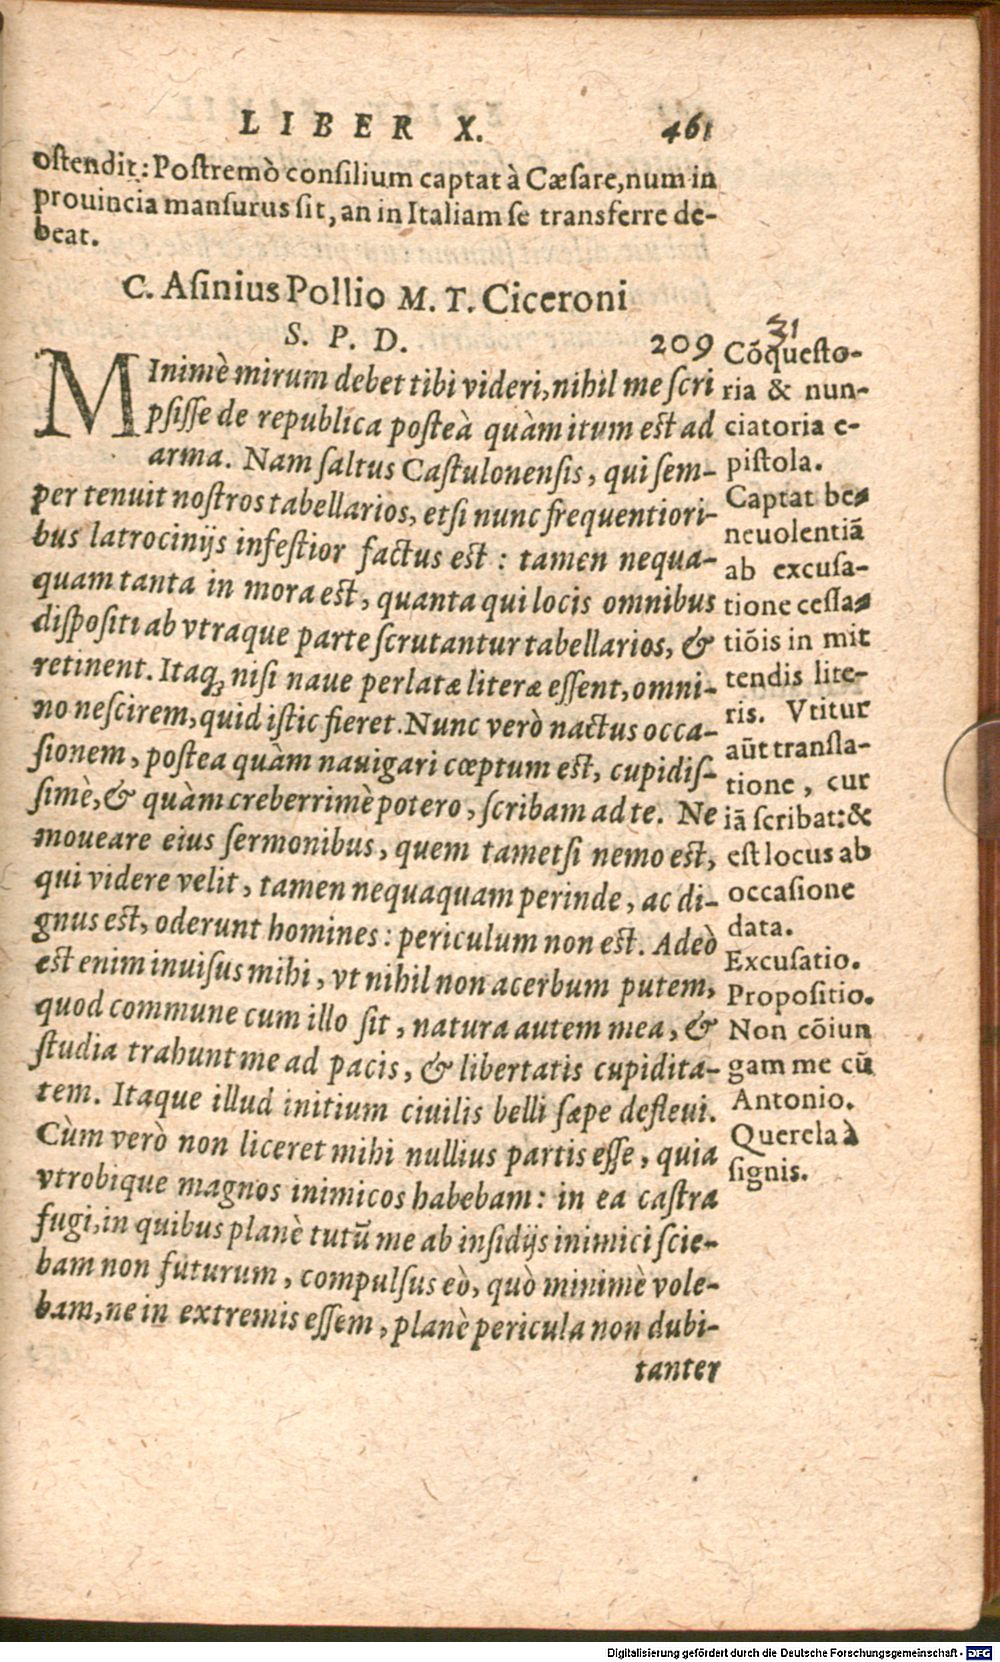 LIBER X. 461
ostendit: Postremò consilium captat à Cæsare, num in
prouincia mansurus sit, an in Italiam se transferre de-
beat.
C. Asinius Pollio M. T. Ciceroni
S. P. D. 209
MInimè mirum debet tibi videri, nihil me scri
psisse de republica posteà quàm itum est ad
arma. Nam saltus Castulonensis, qui sem-
per tenuit nostros tabellarios, etsi nunc frequentiori-
bus latrocinijs infestior factus est: tamen nequa-
quam tanta in mora est, quanta qui locis omnibus
dispositi ab vtraque parte scrutantur tabellarios, &
retinent. Itaq; nisi naue perlatæ literæ essent, omni-
no nescirem, quid istic fieret. Nunc verò nactus occa-
sionem, postea quàm nauigari cœptum est, cupidis-
simè, & quàm creberrimè potero, scribam ad te. Ne
moueare eius sermonibus, quem tametsi nemo est,
qui videre velit, tamen nequaquam perinde, ac di-
gnus est, oderunt homines: periculum non est. Adeò
est enim inuisus mihi, vt nihil non acerbum putem,
quod commune cum illo sit, natura autem mea, &
studia trahunt me ad pacis, & libertatis cupidita-
tem. Itaque illud initium ciuilis belli sæpe defleui.
Cùm verò non liceret mihi nullius partis esse, quia
vtrobique magnos inimicos habebam: in ea castra
fugi, in quibus planè tutū me ab insidijs inimici scie-
bam non futurum, compulsus eò, quò minimè vole-
bam, ne in extremis essem, planè pericula non dubi-
tanter
31
Cōquesto-
ria & nun-
ciatoria e-
pistola.
Captat be-
neuolentiā
ab excusa-
tione cessa-
tiōis in mit
tendis lite-
ris. Vtitur
aūt transla-
tione, cur
iā scribat: &
est locus ab
occasione
data.
Excusatio.
Propositio.
Non cōiun
gam me cū
Antonio.
Querela à
signis.
Digitalisierung gefördert durch die Deutsche Forschungsgemeinschaft - DFG